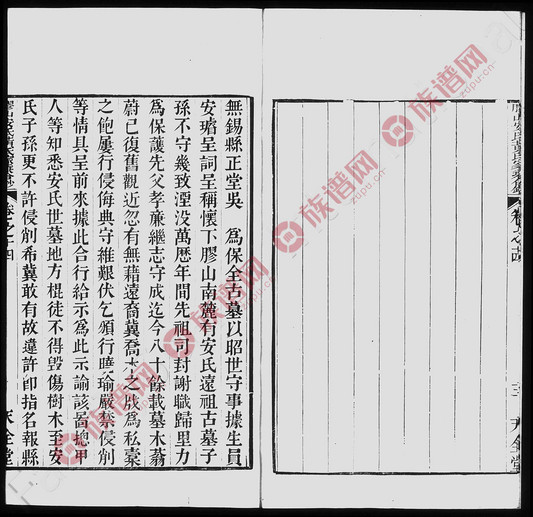 無錫縣正堂吳 為保全古墓以昭世守事據生員
安璿呈詞呈稱懷下膠山南麓有安氏遠祖古墓子
孫不守幾致湮没萬歷年間先祖可封謝職歸里力
為保護先父孝亷繼志守成迄今八十餘載墓木蓊
蔚已復舊觀近忽有無藉遠裔冀喬木之戕為私橐
之飽屢行侵侮典守維艱伏乞頒行曉瑜嚴禁侵削
等情具呈前來據此合行給示為此示諭該啚總甲
人等知悉安氏世墓地方棍徒不得毀傷樹木至安
氏子孫更不許侵削希冀敢有故違許卽指名報縣
卷之十四
天全堂
族谱网
zupu.cn
族谱网
zupu.cn
族谱网
zupu.cn
族谱网